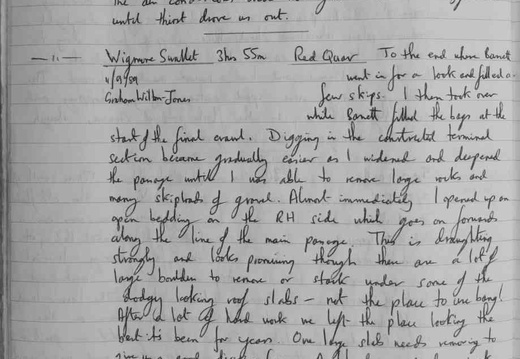 until thirst drove us out.
— " — Wigmore Swallet 3hrs 55m Red Quar To the end where Barrett
4/9/99 went in for a look and filled a
Graham Wilton-Jones few skips. I then took over
while Barrett filled the bags at the
start of the final crawl. Digging in the constricted terminal
section became gradually easier as I widened and deepened
the passage until I was able to remove large rocks and
many skiploads of gravel. Almost immediately I opened up an
open bedding on the RH side which goes on forwards
along the line of the main passage. This is draughting
strongly and looks promising though there are a lot of
large boulders to remove or stack under some of the
dodgy looking roof slabs – not the place to use bang!
After a lot of hard work we left the place looking the
best it's been for years. One large slab needs removing to